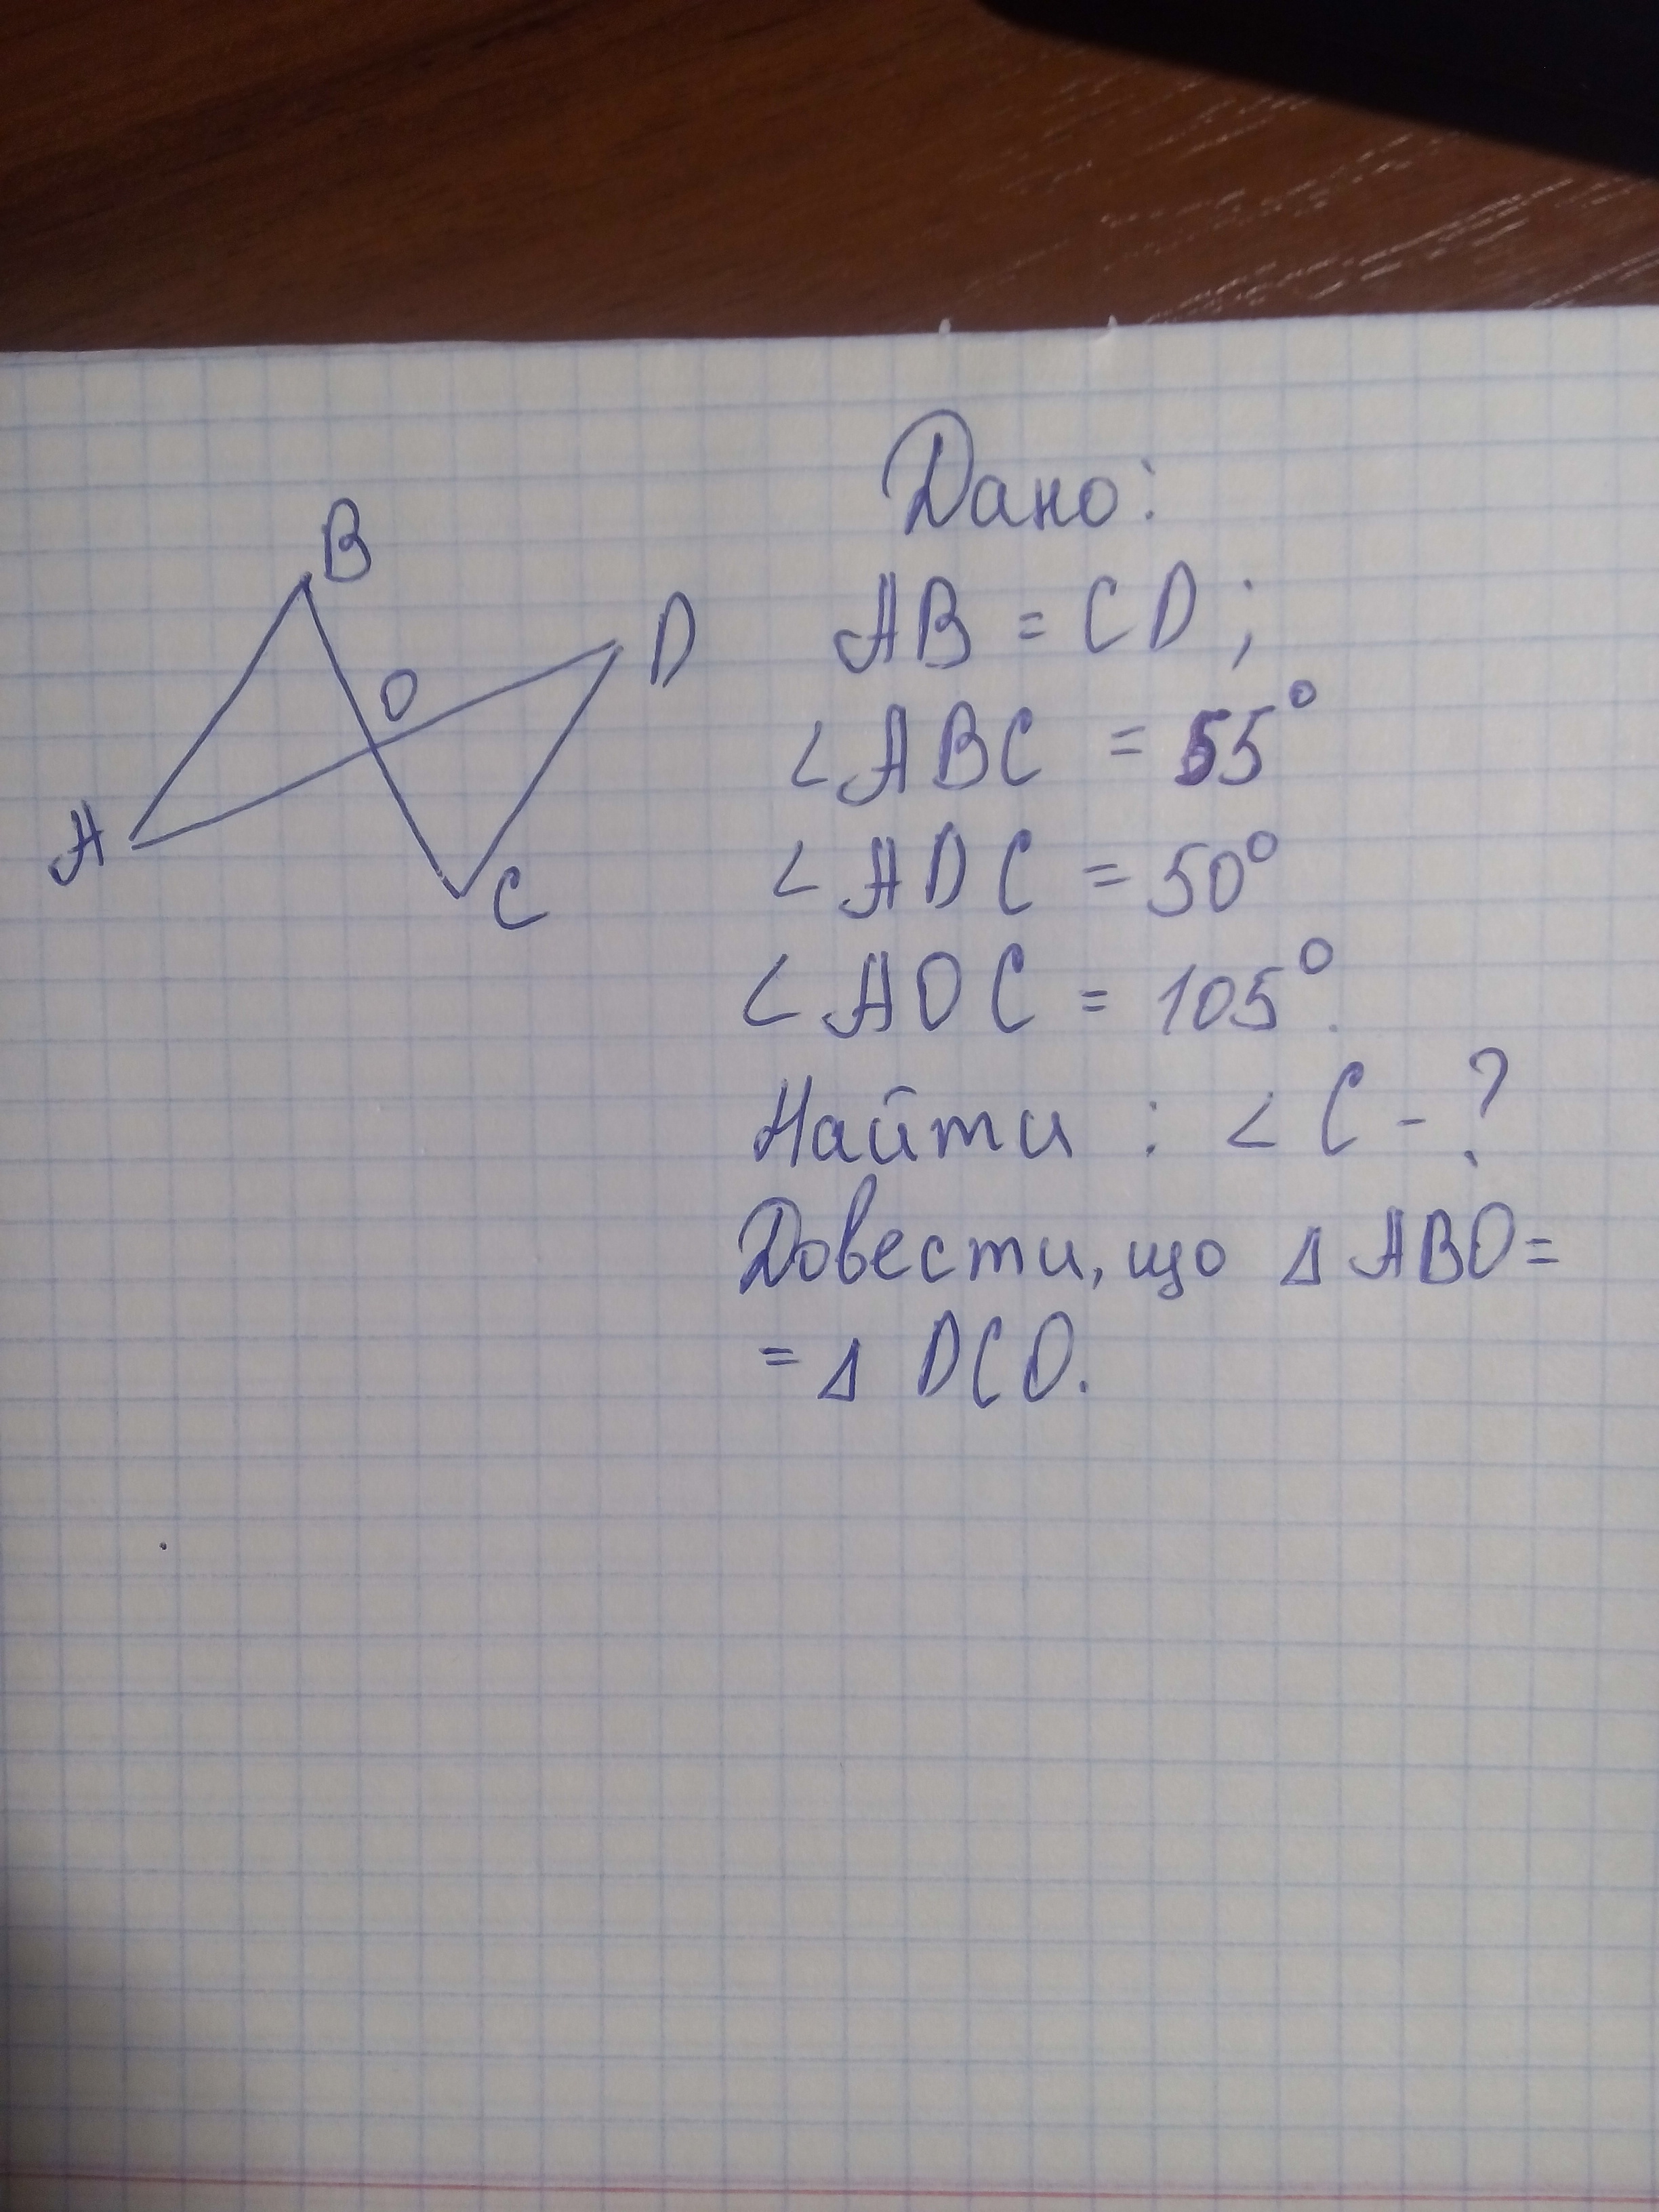 B
D
O
A
C
Дано:
AB = CD;
∠ABC = 55°
∠ADC = 50°
∠AOC = 105°.
Найти : ∠C - ?
Довести, що Δ ABO =
= Δ DCO.